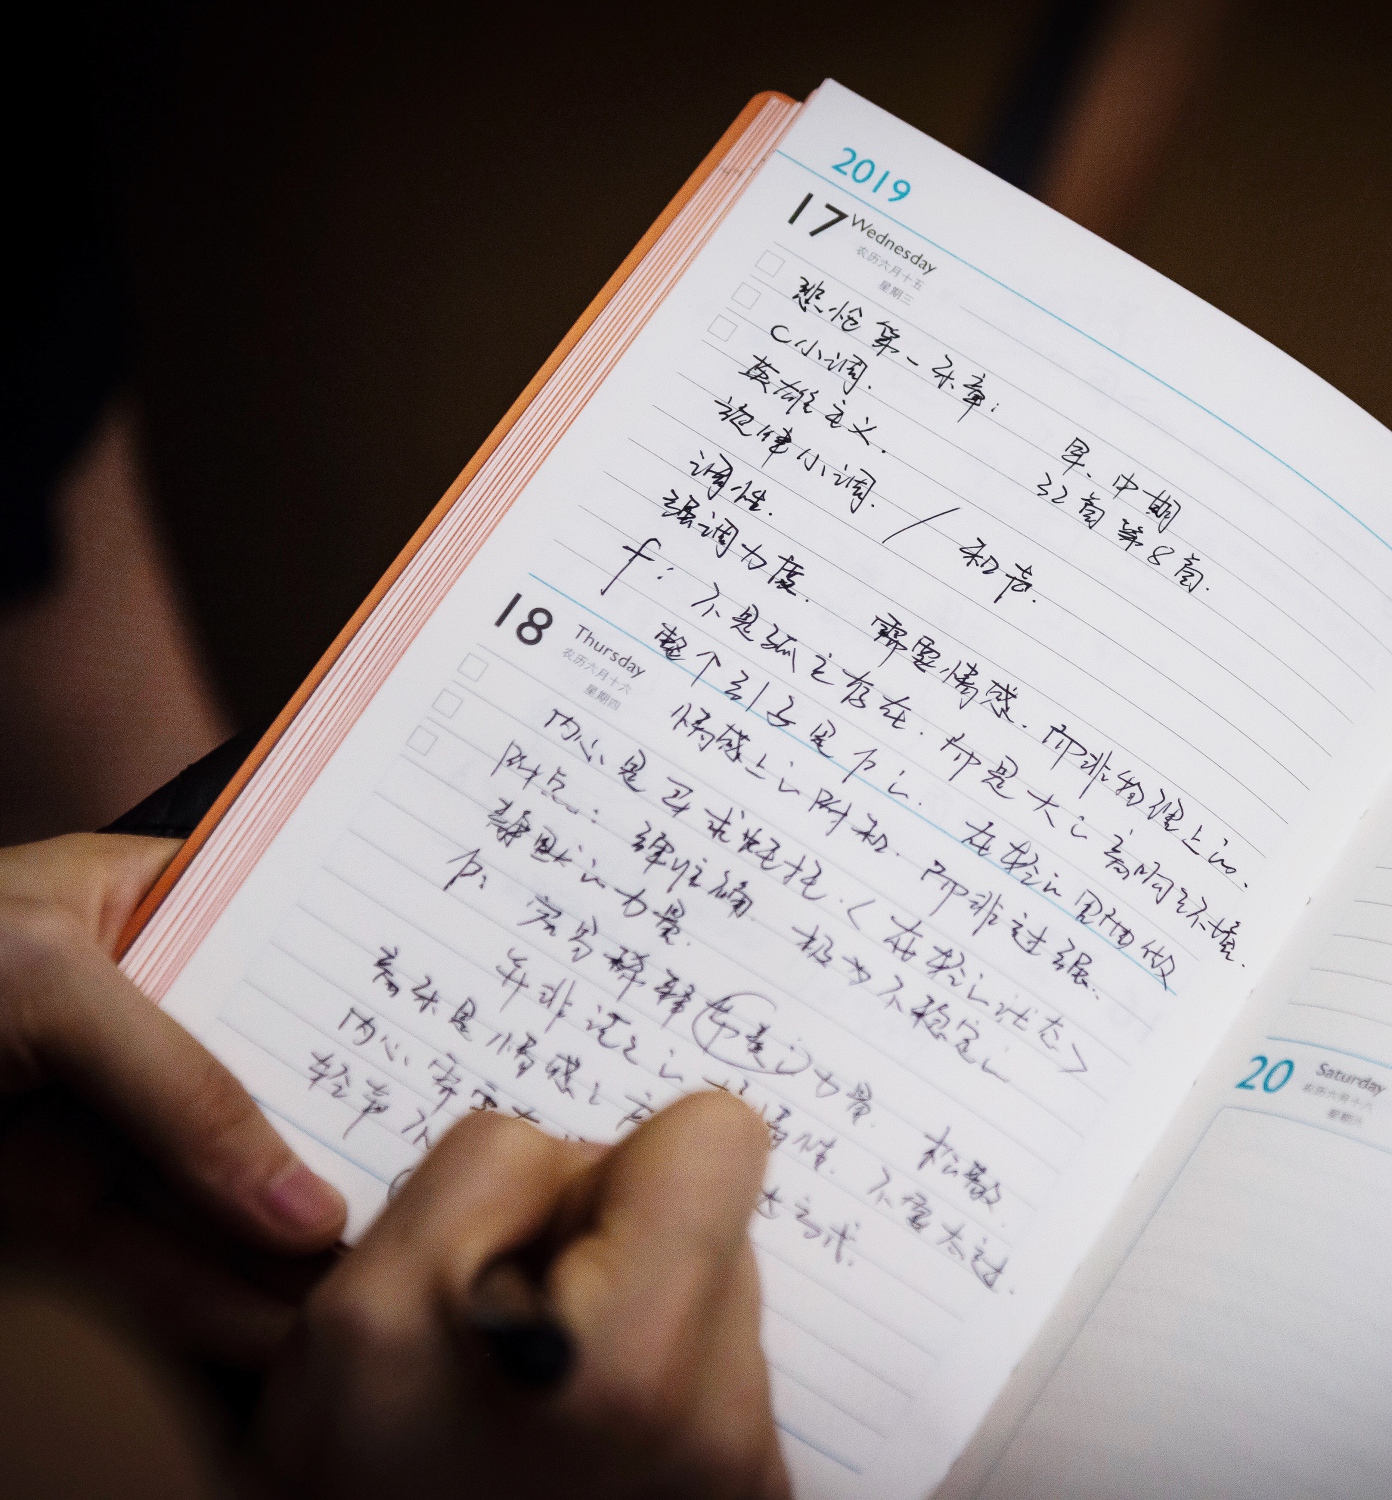 2019
17 Wednesday
农历六月十五
星期三
悲怆第一乐章:
C小调.
早、中期
英雄主义.
32首第8首.
旋律小调. / 和声.
调性.
强调力度. 需要情感. 而非物理上的.
f: 不是孤立存在. 而是大的音响环境.
18 Thursday
农历六月十六
星期四
整个引子是p的. 在轻的周围做
情感上的附和. 而非过强..
内心是寻求 <在轻的状态>
附点: 准确. 极为不稳定的
静默的力量.
p: 力量. 松散.
并非 不要太过.
音乐是情感
内心需要
轻声不
达方式.
20 Saturday
农历六月十八
星期六